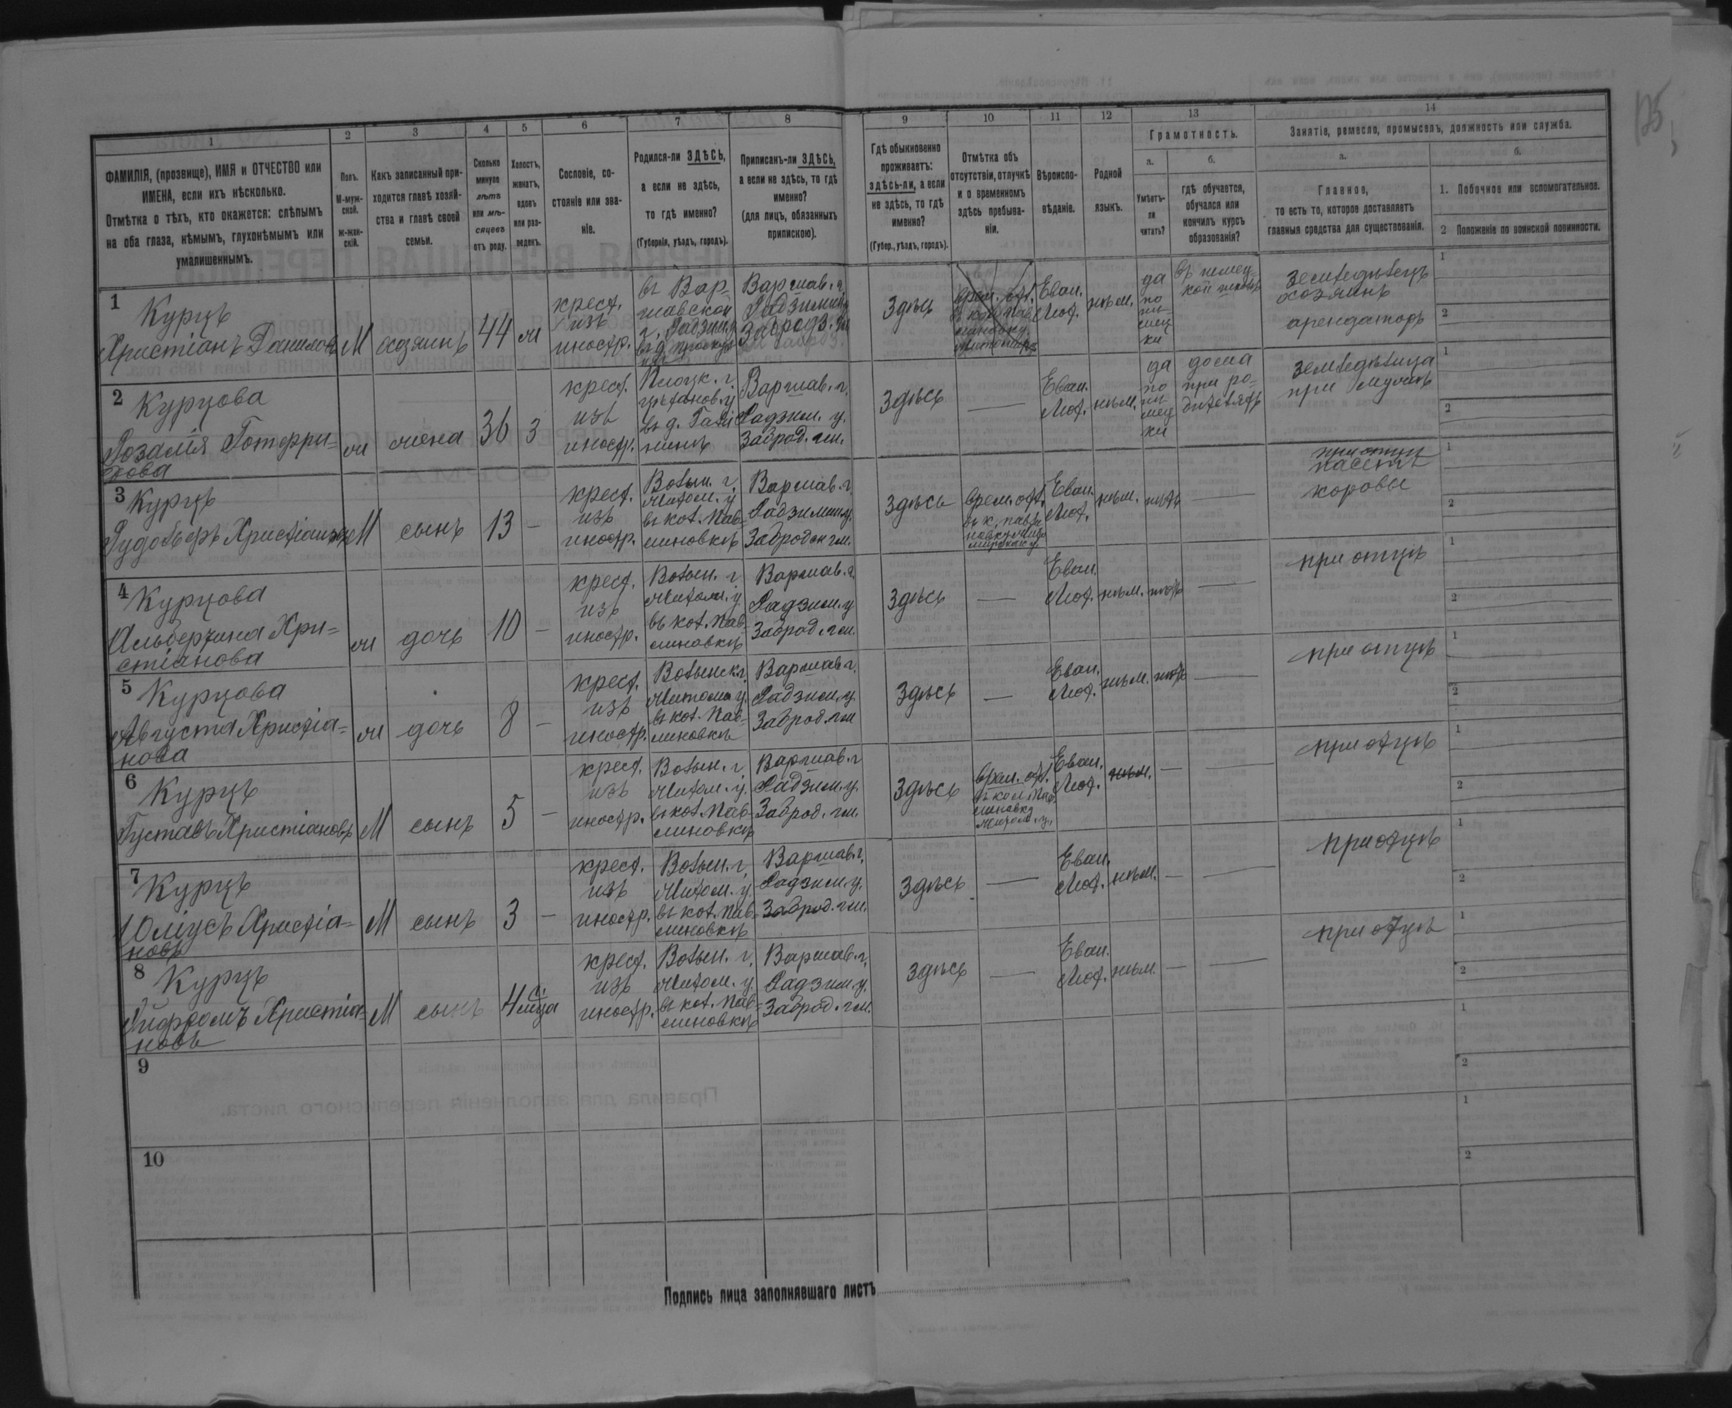 125,
1
2
3
4
5
6
7
8
9
10
11
12
13
14
ФАМИЛІЯ, (прозвище), ИМЯ и ОТЧЕСТВО или
ИМЕНА, если ихъ нѣсколько.
Отмѣтка о тѣхъ, кто окажется: слѣпымъ
на оба глаза, нѣмымъ, глухонѣмымъ или
умалишеннымъ.
Полъ.
М-муж-
ской.
ж-жен-
скій.
Какъ записанный при-
ходится главѣ хозяй-
ства и главѣ своей
семьи.
Сколько
минуло
лѣтъ
или мѣ-
сяцевъ
отъ роду.
Холостъ,
женатъ,
вдовъ
или раз-
веденъ.
Сословіе, со-
стояніе или зва-
ніе.
Родился-ли ЗДѢСЬ,
а если не здѣсь,
то гдѣ именно?
(Губернія, уѣздъ, городъ).
Приписанъ-ли ЗДѢСЬ,
а если не здѣсь, то гдѣ
именно?
(для лицъ, обязанныхъ
припискою).
Гдѣ обыкновенно
проживаетъ:
здѣсь-ли, а если
не здѣсь, то гдѣ
именно?
(Губер., уѣздъ, городъ).
Отмѣтка объ
отсутствіи, отлучкѣ
и о временномъ
здѣсь пребыва-
ніи.
Вѣроиспо-
вѣданіе.
Родной
языкъ.
Грамотность.
а.
Умѣетъ-
ли
читать?
б.
гдѣ обучается,
обучался или
кончилъ курсъ
образованія?
Занятіе, ремесло, промыселъ, должность или служба.
а.
Главное,
то есть то, которое доставляетъ
главныя средства для существованія.
б.
1. Побочное или вспомогательное.
2 Положеніе по воинской повинности.
1
Курцъ
Христіанъ Даниловъ
М
хозяинъ
44
ж
крест.
изъ
иностр.
въ Вар-
шавской
г. Радзим.
Варшав. г.
Радзимин.
Заброд.
здѣсь
Еван.
Лют.
нѣм.
да
по
нѣ-
мец
ки
въ немец-
кой школѣ
земледѣлецъ
хозяинъ
арендаторъ
1
2
2
Курцова
Розалія Готфри-
хова
ж
жена
36
з
крест.
изъ
иностр.
Плоцк. г.
Варшав. г.
Радзим. у.
Заброд. гм.
здѣсь
—
Еван.
Лют.
нѣм.
да
по
нѣ-
мец
ки
дома
при ро-
дителяхъ
земледѣлица
при мужѣ
1
2
3
Курцъ
Рудольфъ Христіановъ
М
сынъ
13
—
крест.
изъ
иностр.
Волын. г.
Житом. у
въ кол. Пав-
линовкѣ
Варшав. г.
Радзимин у.
Заброд гм.
здѣсь
врем. отл.
Еван.
Лют.
нѣм.
нѣтъ
—
при отцѣ
пасетъ
коровы
1
2
4
Курцова
Альбертина Хри-
стіанова
ж
дочь
10
—
крест.
изъ
иностр.
Волын. г.
Житом. у
въ кол. Пав-
линовкѣ
Варшав. г.
Радзим. у
Заброд. гм.
здѣсь
—
Еван.
Лют.
нѣм.
нѣтъ
—
при отцѣ
1
2
5
Курцова
Августа Христіа-
нова
ж
дочь
8
—
крест.
изъ
иностр.
Волынск г.
Житом у.
въ кол. Пав-
линовкѣ
Варшав г.
Радзим. у.
Заброд. гм
здѣсь
—
Еван.
Лют.
нѣм.
нѣтъ
—
при отцѣ
1
2
6
Курцъ
Густавъ Христіановъ
М
сынъ
5
—
крест.
изъ
иностр.
Волын. г.
Житом. у.
въ кол. Пав-
линовкѣ
Варшав. г
Радзим. у.
Заброд. гм.
здѣсь
врем. отл.
въ кол. Пав-
линовка
Житом. у.
Еван.
Лют.
нѣм.
—
—
при отцѣ
1
2
7
Курцъ
Юліусъ Христіа-
новъ
М
сынъ
3
—
крест.
изъ
иностр.
Волын. г.
Житом. у.
въ кол. Пав-
линовкѣ
Варшав. г.
Радзим. у.
Заброд. гм.
здѣсь
—
Еван.
Лют.
нѣм.
—
—
при отцѣ
1
2
8
Курцъ
Христіа-
новъ
М
сынъ
4 мѣсяца
крест.
изъ
иностр.
Волын. г.
Житом. у.
въ кол. Пав-
линовкѣ
Варшав. г.
Радзим. у.
Заброд. гм.
здѣсь
—
Еван.
Лют.
нѣм.
—
—
при отцѣ
1
2
9
1
2
10
1
2
Подпись лица заполнявшаго листъ